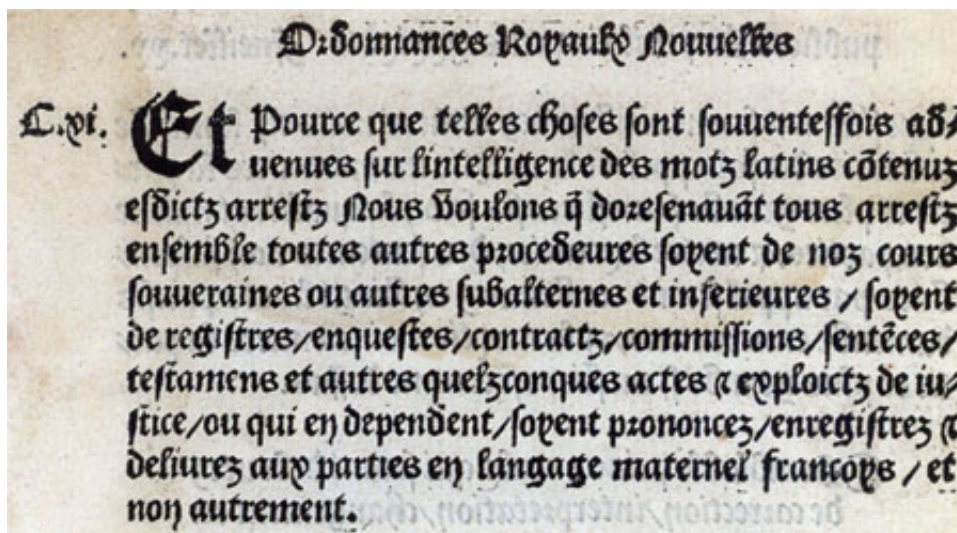 Ordonnances Royaulx Nouuelles
C.xi. Et Pource que telles choses sont souuenteſſois ad/
uenues ſur lintelligence des motz latins cõtenuz
eſdictz arreſtz Nous voulons q̃ doreſenauãt tous arreſtz
enſemble toutes autres procedeures ſoyent de noz cours
ſouueraines ou autres ſubalternes et inferieures / ſoyent
de regiſtres/enqueſtes/contractz/commiſſions/ſentẽces/
teſtamens et autres quelzconques actes ⁊ exploictz de iu/
ſtice/ou qui en dependent/ſoyent prononcez/enregiſtrez ⁊
deliurez aux parties en langage maternel francoys / et
non autrement.